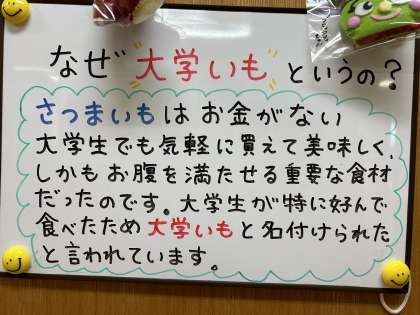 なぜ 大学いも というの?
さつまいもはお金がない
大学生でも気軽に買えて美味しく、
しかもお腹を満たせる重要な食材
だったのです。大学生が特に好んで
食べたため大学いもと名付けられた
と言われています。